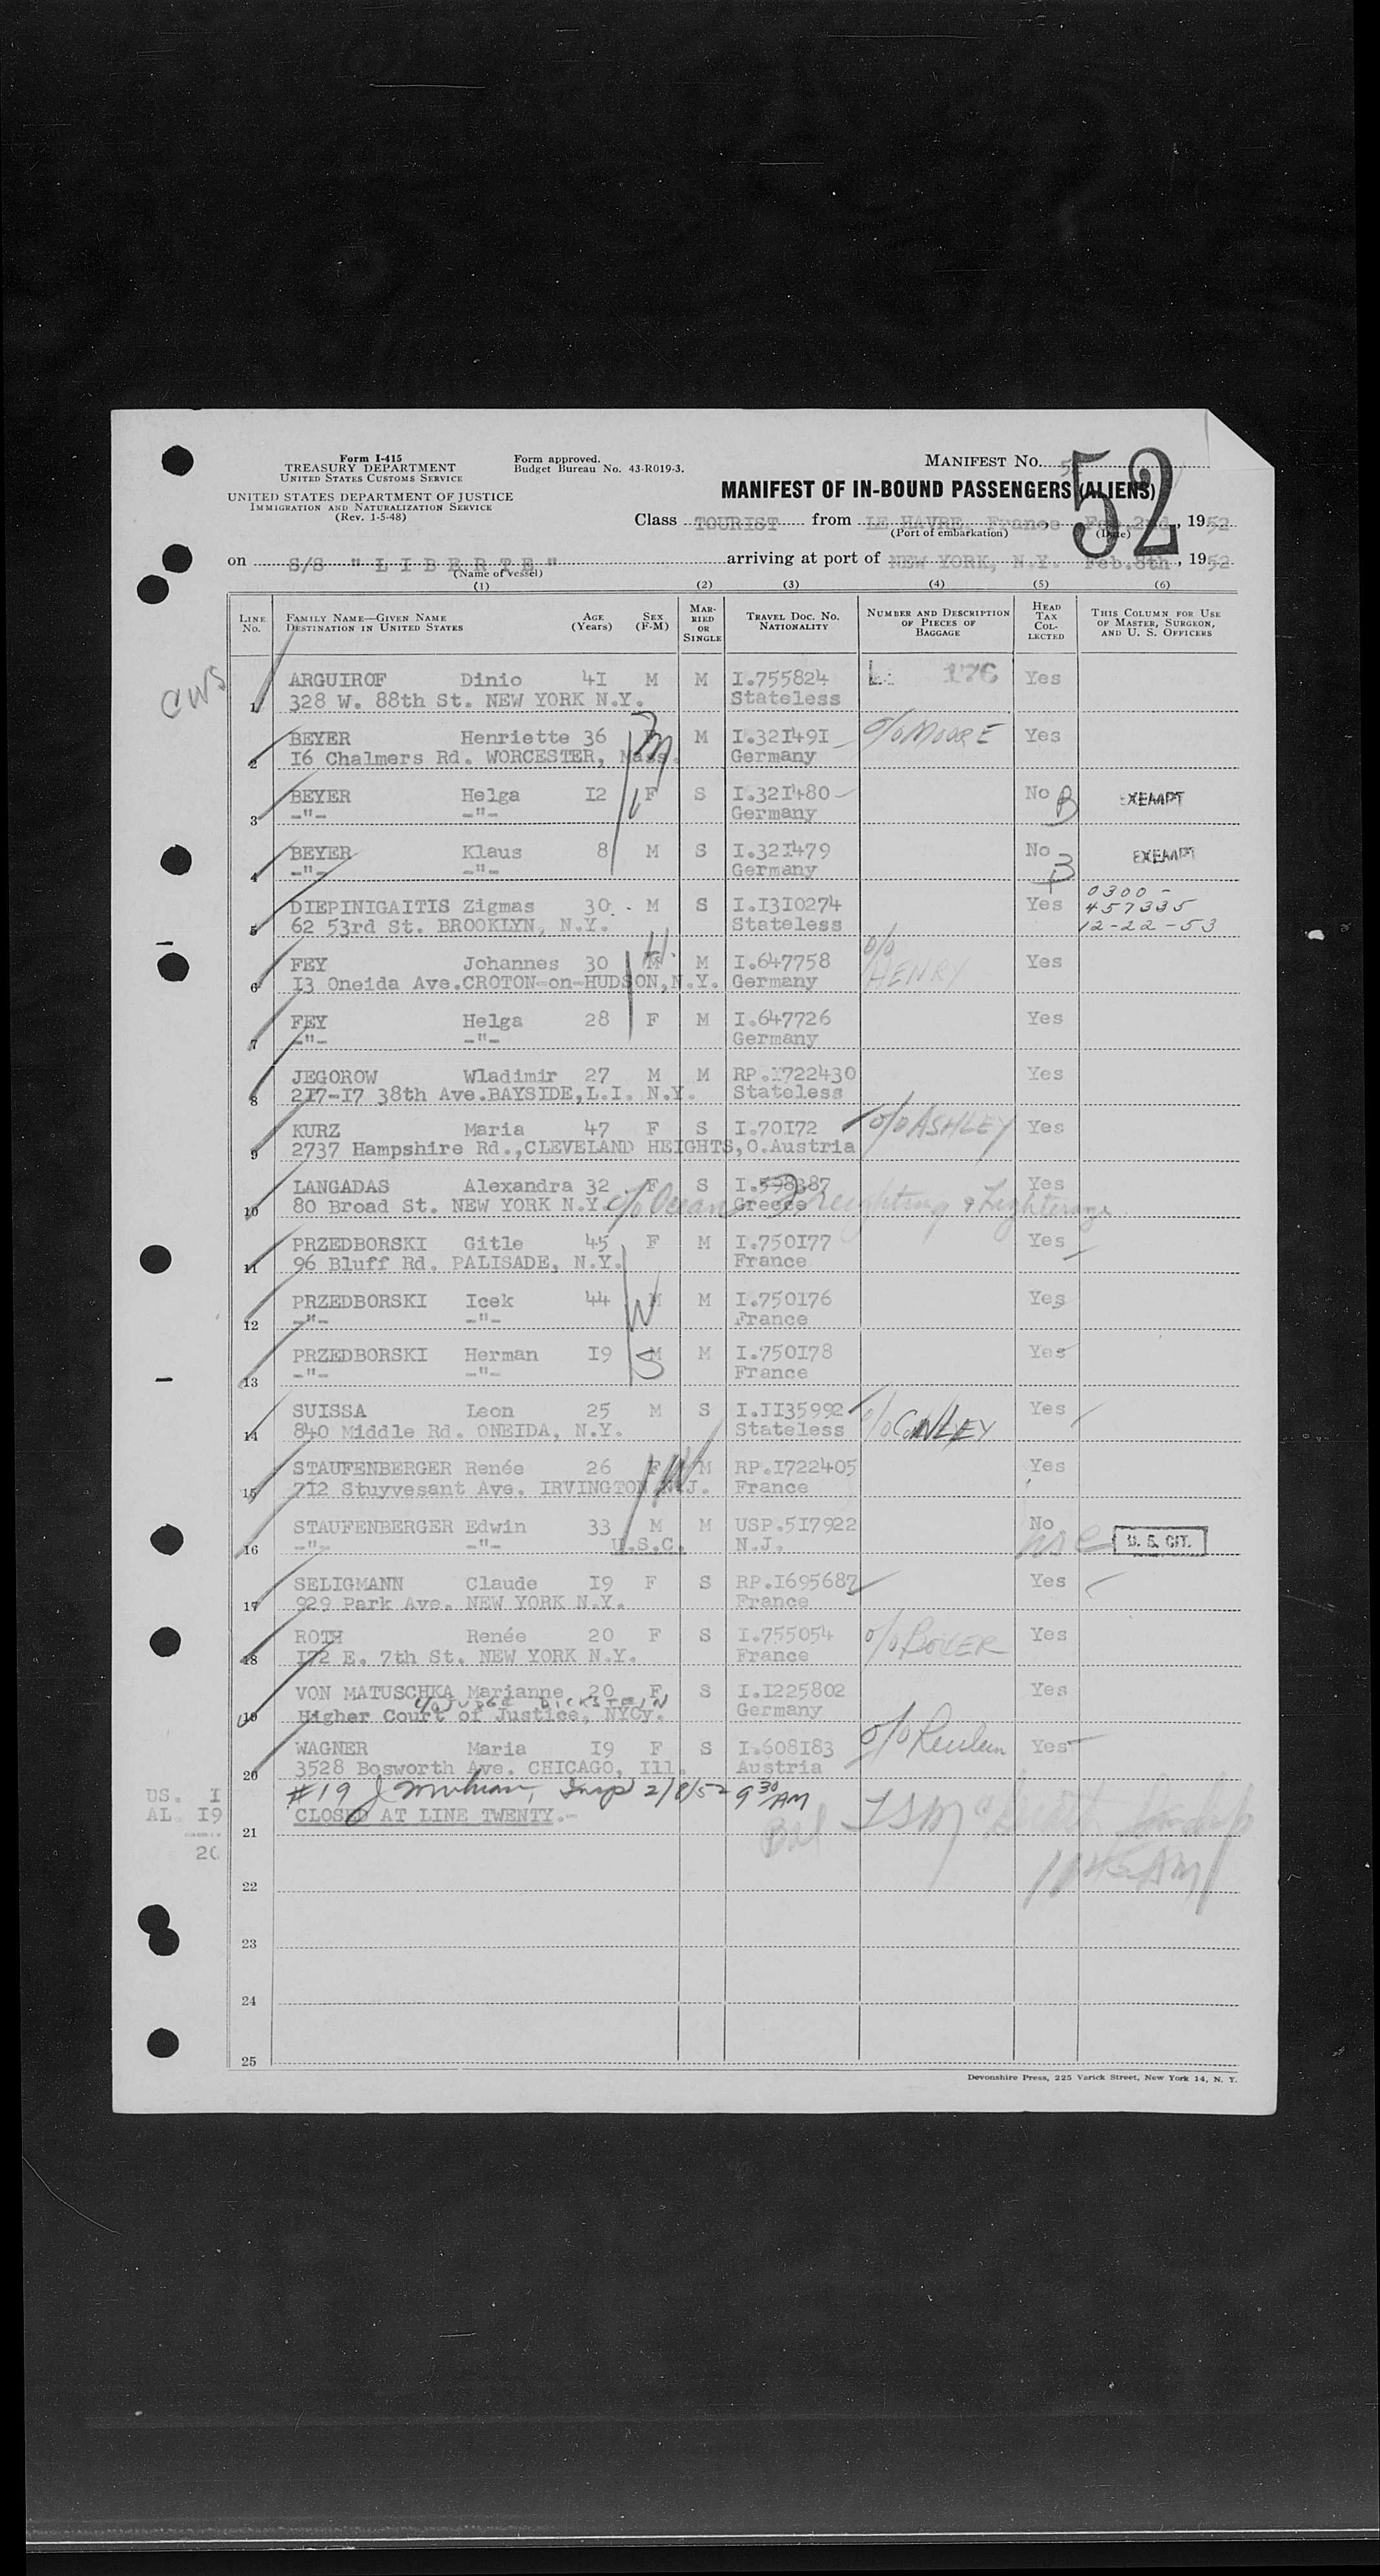 Form I-415
TREASURY DEPARTMENT
UNITED STATES CUSTOMS SERVICE
UNITED STATES DEPARTMENT OF JUSTICE
IMMIGRATION AND NATURALIZATION SERVICE
(Rev. 1-5-48)
Form approved.
Budget Bureau No. 43-R019-3.
MANIFEST No.
52
MANIFEST OF IN-BOUND PASSENGERS (ALIENS)
Class TOURIST from LE HAVRE, France, Feb.2nd, 1952
(Port of embarkation) (Date)
on S/S "LIBERTE" arriving at port of NEW YORK, N.Y. Feb.8th, 1952
(Name of vessel)
(1) (2) (3) (4) (5) (6)
LINE No. FAMILY NAME—GIVEN NAME DESTINATION IN UNITED STATES AGE (Years) SEX (F-M) MARRIED OR SINGLE TRAVEL DOC. NO. NATIONALITY NUMBER AND DESCRIPTION OF PIECES OF BAGGAGE HEAD TAX COLLECTED THIS COLUMN FOR USE OF MASTER, SURGEON, AND U. S. OFFICERS
CWS
1 ARGUIROF Dinio 4I M M I.755824 L: 176 Yes
328 W. 88th St. NEW YORK N.Y. Stateless
2 BEYER Henriette 36 M I.32I49I c/o MOORE Yes
I6 Chalmers Rd. WORCESTER, Mass. Germany
3 BEYER Helga I2 F S I.32I480 No B EXEMPT
-"- -"- Germany
4 BEYER Klaus 8 M S I.32I479 No B EXEMPT
-"- -"- Germany
5 DIEPINIGAITIS Zigmas 30 M S I.I3I0274 Yes 0300 -
62 53rd St. BROOKLYN, N.Y. Stateless 457335
12-22-53
6 FEY Johannes 30 M M I.647758 c/o HENRY Yes
I3 Oneida Ave.CROTON-on-HUDSON,N.Y. Germany
7 FEY Helga 28 F M I.647726 Yes
-"- -"- Germany
8 JEGOROW Wladimir 27 M M RP.I722430 Yes
2I7-I7 38th Ave.BAYSIDE,L.I. N.Y. Stateless
9 KURZ Maria 47 F S I.70I72 c/o ASHLEY Yes
2737 Hampshire Rd.,CLEVELAND HEIGHTS,O.Austria
10 LANGADAS Alexandra 32 F S I.598387 Yes
80 Broad St. NEW YORK N.Y. c/o Ocean Freighting & Lighterage Greece
11 PRZEDBORSKI Gitle 45 F M I.750I77 Yes
96 Bluff Rd. PALISADE, N.Y. France
12 PRZEDBORSKI Icek 44 M M I.750I76 Yes
-"- -"- France
13 PRZEDBORSKI Herman I9 M M I.750I78 Yes
-"- -"- France
14 SUISSA Leon 25 M S I.II35992 c/o CONLEY Yes
840 Middle Rd. ONEIDA, N.Y. Stateless
15 STAUFENBERGER Renée 26 F M RP.I722405 Yes
7I2 Stuyvesant Ave. IRVINGTON N.J. France
16 STAUFENBERGER Edwin 33 M M USP.5I7922 No U. S. CIT.
-"- -"- U.S.C. N.J.
17 SELIGMANN Claude I9 F S RP.I695687 Yes
929 Park Ave. NEW YORK N.Y. France
18 ROTH Renée 20 F S I.755054 c/o BOYER Yes
I72 E. 7th St. NEW YORK N.Y. France
19 VON MATUSCHKA Marianne 20 F S I.I225802 Yes
c/o JUDGE DICKSTEIN
Higher Court of Justice, NYCy. Germany
20 WAGNER Maria I9 F S I.608I83 c/o Yes
3528 Bosworth Ave. CHICAGO, Ill. Austria
#19 Insp 2/8/52 9 30 AM
US. I CLOSED AT LINE TWENTY.-
AL. I9
20
21
22
23
24
25
Devonshire Press, 225 Varick Street, New York 14, N. Y.